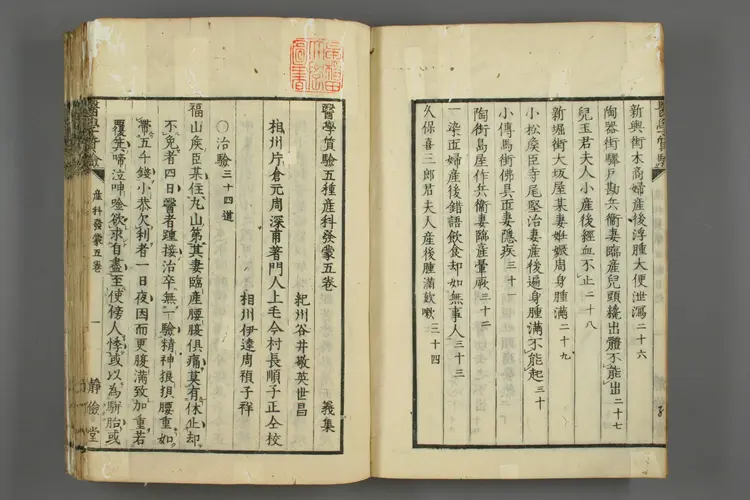 新輿街木高婦産後浮腫大便泄瀉二十六
陶器街驛戸勘兵衞妻臨産兒頭纔出體不能出二十七
兒玉君夫人小産後經血不止二十八
新堀街大坂屋某妻姙娠周身腫滿二十九
小松矦臣寺尾堅治妻産後遍身腫滿不能起三十
小傳馬街佛具匠妻隱疾三十一
陶街島座作兵衞妻臨産暈厥三十二
一染匠婦産後錯語飲食却如無事人三十三
久保喜三郎君夫人産後腫滿欬嗽三十四
醫學質驗五種産科發蒙五卷
相州片倉元周深甫著門人上毛今村長順子正仝校
紀州谷井敬英世昌
相州伊達周禎子祥
義集
○治驗三十四道
福山矦臣某住丸山第其妻臨産腰腹俱痛莫有休止却
不免者四日醫者踵接治卒無一驗精神狼狽腰重如
帶五千錢小恭欠利者一日夜因而更腹滿致加重若
覆箕啼泣呻唫欲求自盡至使傍人悸或以為駢胎或
醫學質驗
産科發蒙五卷
一
靜儉堂